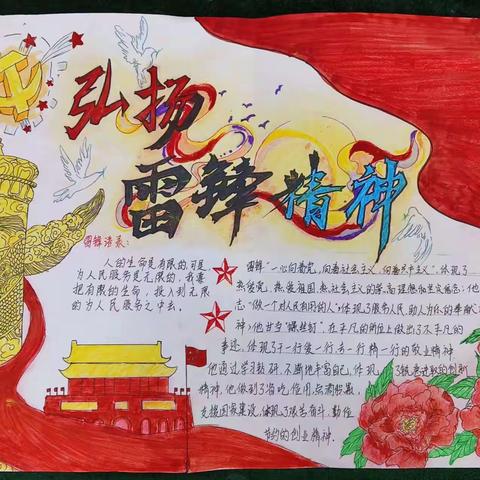 弘扬
雷锋精神
雷锋语录:
人的生命是有限的可是,
为人民服务是无限的,我要
把有限的生命,投入到无限
的为人民服务之中去。
雷锋“一心向着党,向着社会主义,向着共产主义”,体现了
热爱党、热爱祖国、热社会主义的崇高理想和坚定信念;他
志“做一个对人民有用的人”,体现了服务人民、助人为乐的奉献
神;他甘当“螺丝钉”,在平凡的岗位上做出了不平凡的
事迹,体现了干一行爱一行、专一行精一行的敬业精神
他通过学习钻研,不断地丰富自己,体现了锐意进取的创新
精神,他做到了省吃俭用,点滴积累,
支援国家建设,体现了艰苦奋斗、勤俭
节约的创业精神.